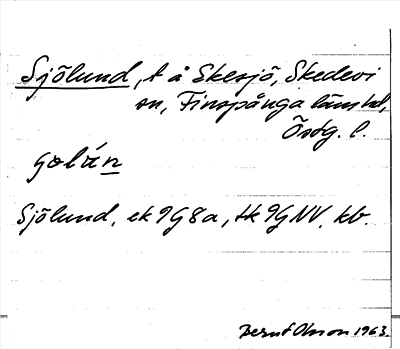 Sjölund, t å Skesjö, Skedevi
sn, Finspånga länshd,
Östg. l.
Sjölund, ek 9G8a, tk 9GNV, kb.
Bernt Olsson 1963.